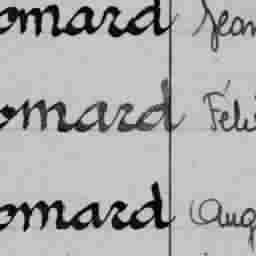 omard Jean
omard Féli
omard Aug